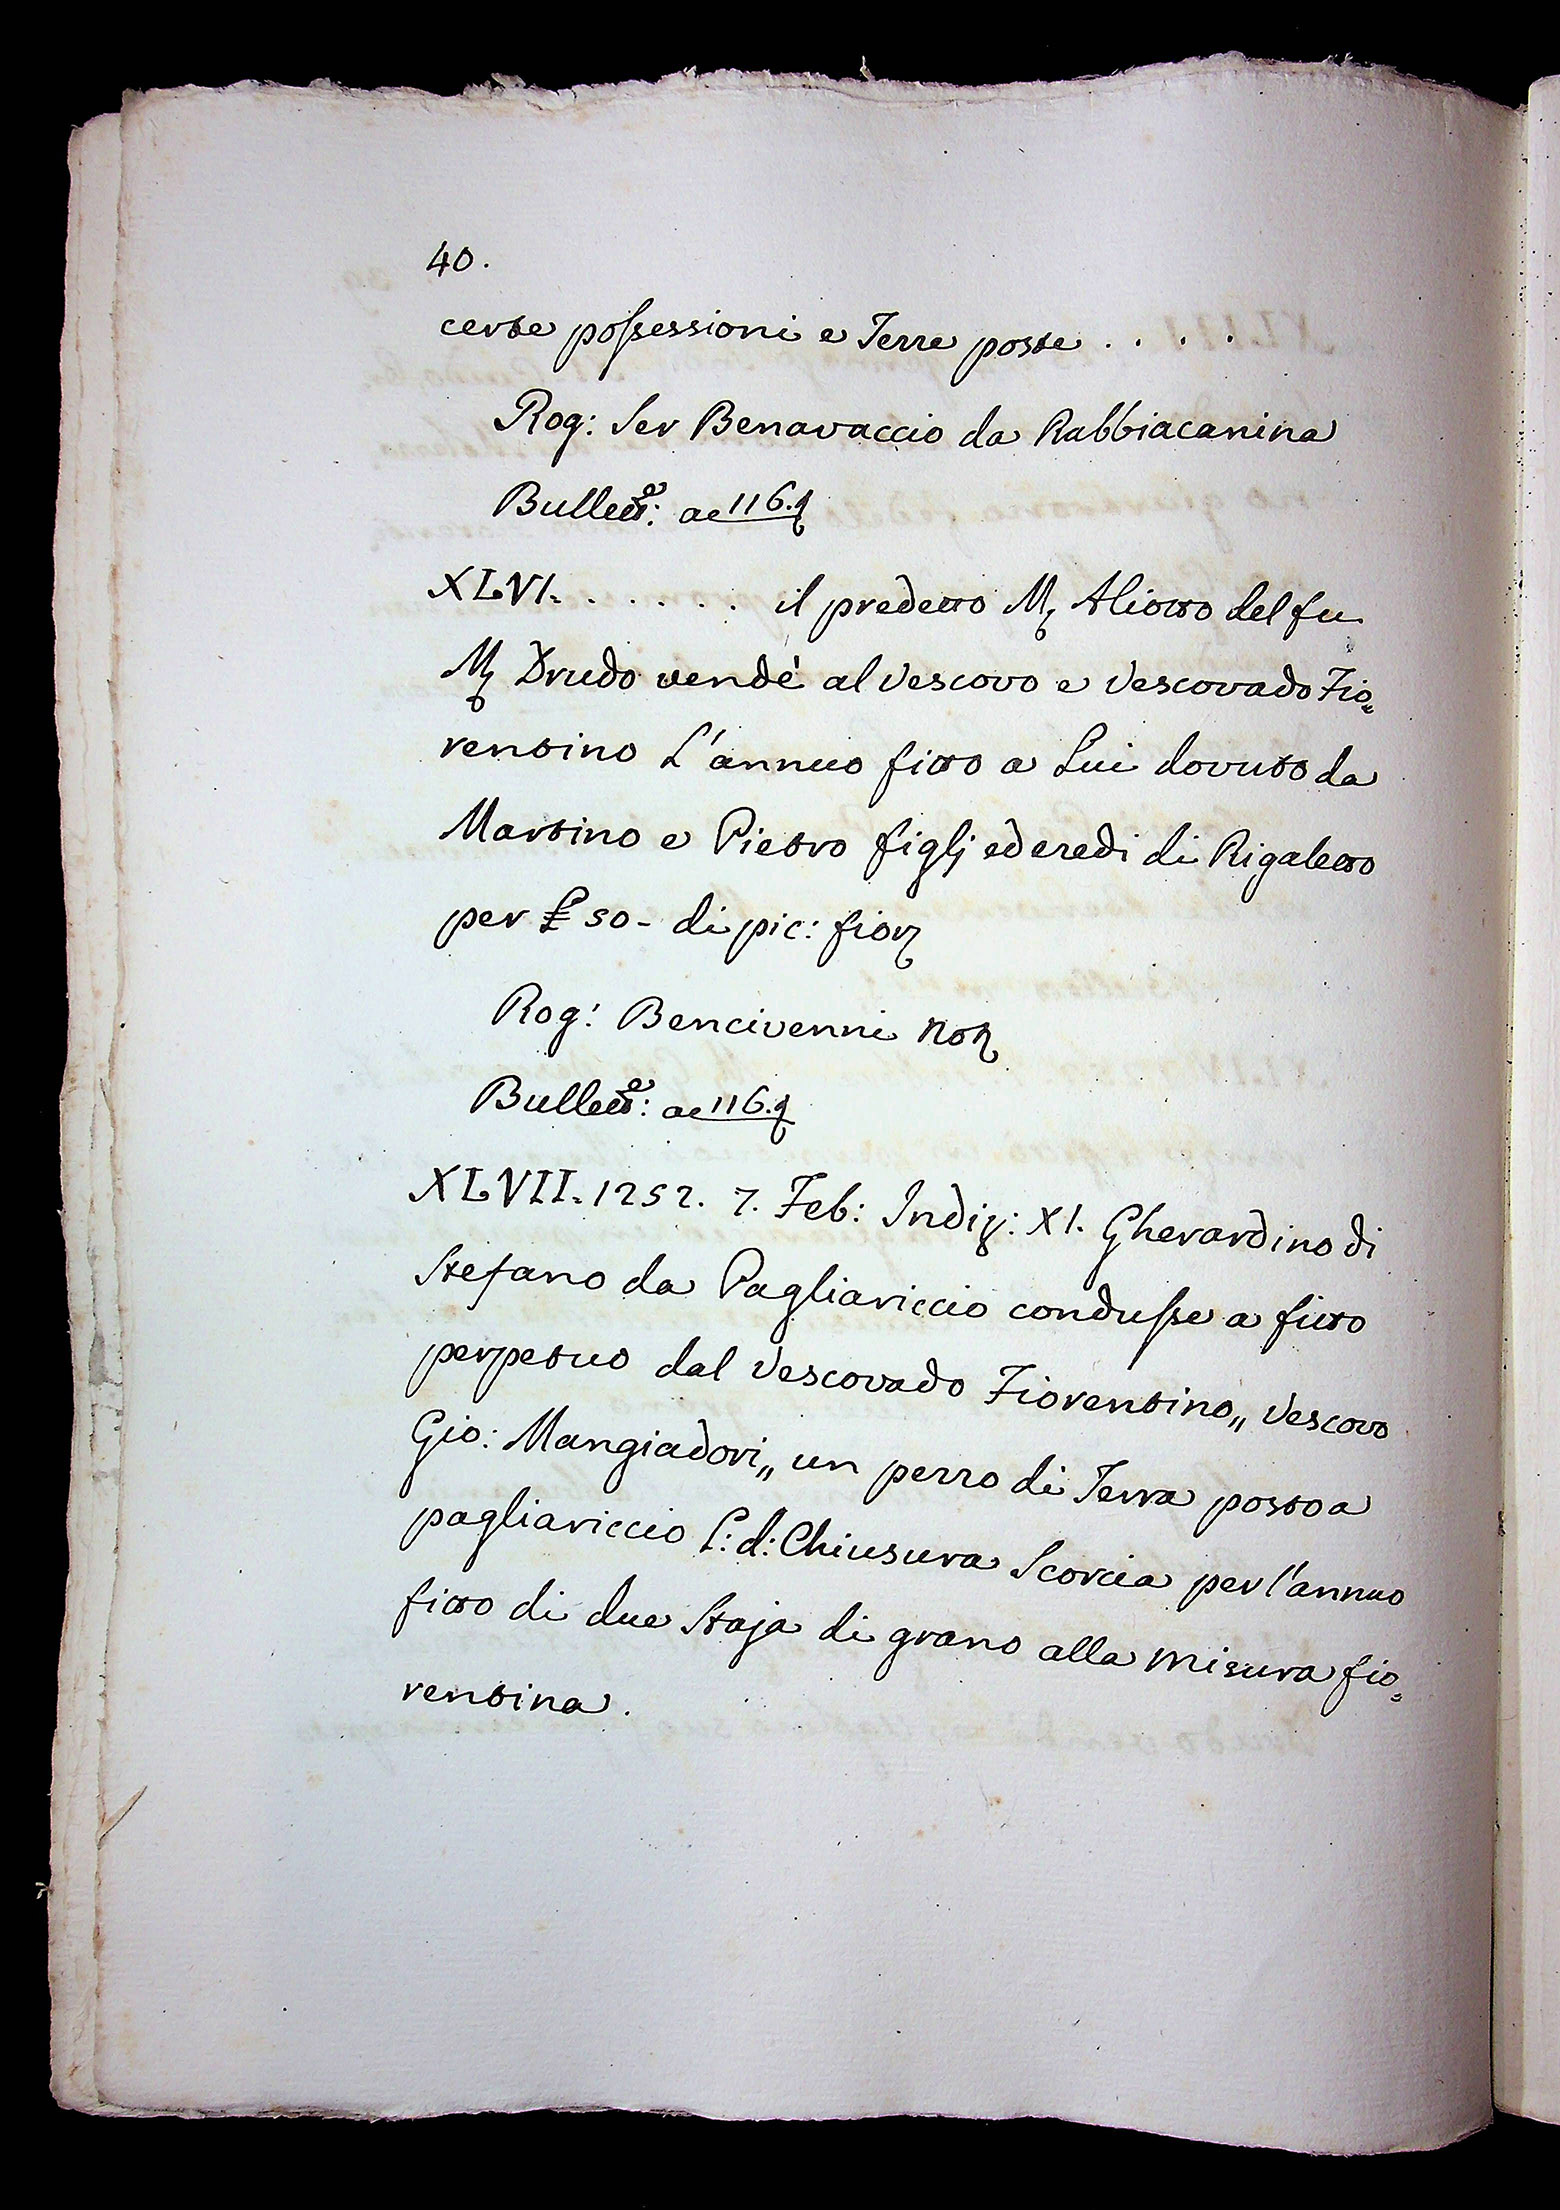 40.
certe possessioni e Terre poste . . . .
Rog: Ser Benavaccio da Rabbiacanina
Bullett:e ac 116.
XLVI. . . . . . . il predetto M. Aliotto del fu
M. Drudo vendè al Vescovo e Vescovado Fio=
rentino L'annuo fitto a Lui dovuto da
Martino e Pietro figlj ed eredi di Rigaletto
per £ 50- di pic: fior
Rog: Bencivenni Not
Bullett:e ac 116.
XLVII. 1252. 7. Feb: Indiz: XI. Gherardino di
Stefano da Pagliariccio condusse a fitto
perpetuo dal Vescovado Fiorentino,, Vescovo
Gio: Mangiadori,, un pezzo di Terra posto a
pagliariccio l: d: Chiusura Scorcia per l'annuo
fitto di due Staja di grano alla misura fio=
rentina.